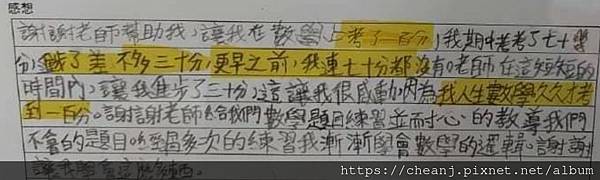 感想
謝謝老師幫助我,讓我在數學上考了一百分,我期中考考了七十幾
分,錯了差不多三十分,更早之前,我連七十分都沒有。老師在這短短的
時間內,讓我進步了三十分,這讓我很感動,因為我人生數學久久才考
到一百分。謝謝老師給我們數學題目練習並耐心的教導我們
不會的題目,經過多次的練習我漸漸學會數學的邏輯。謝謝
讓我學會這麼多東西。
https://cheanj.pixnet.net/album